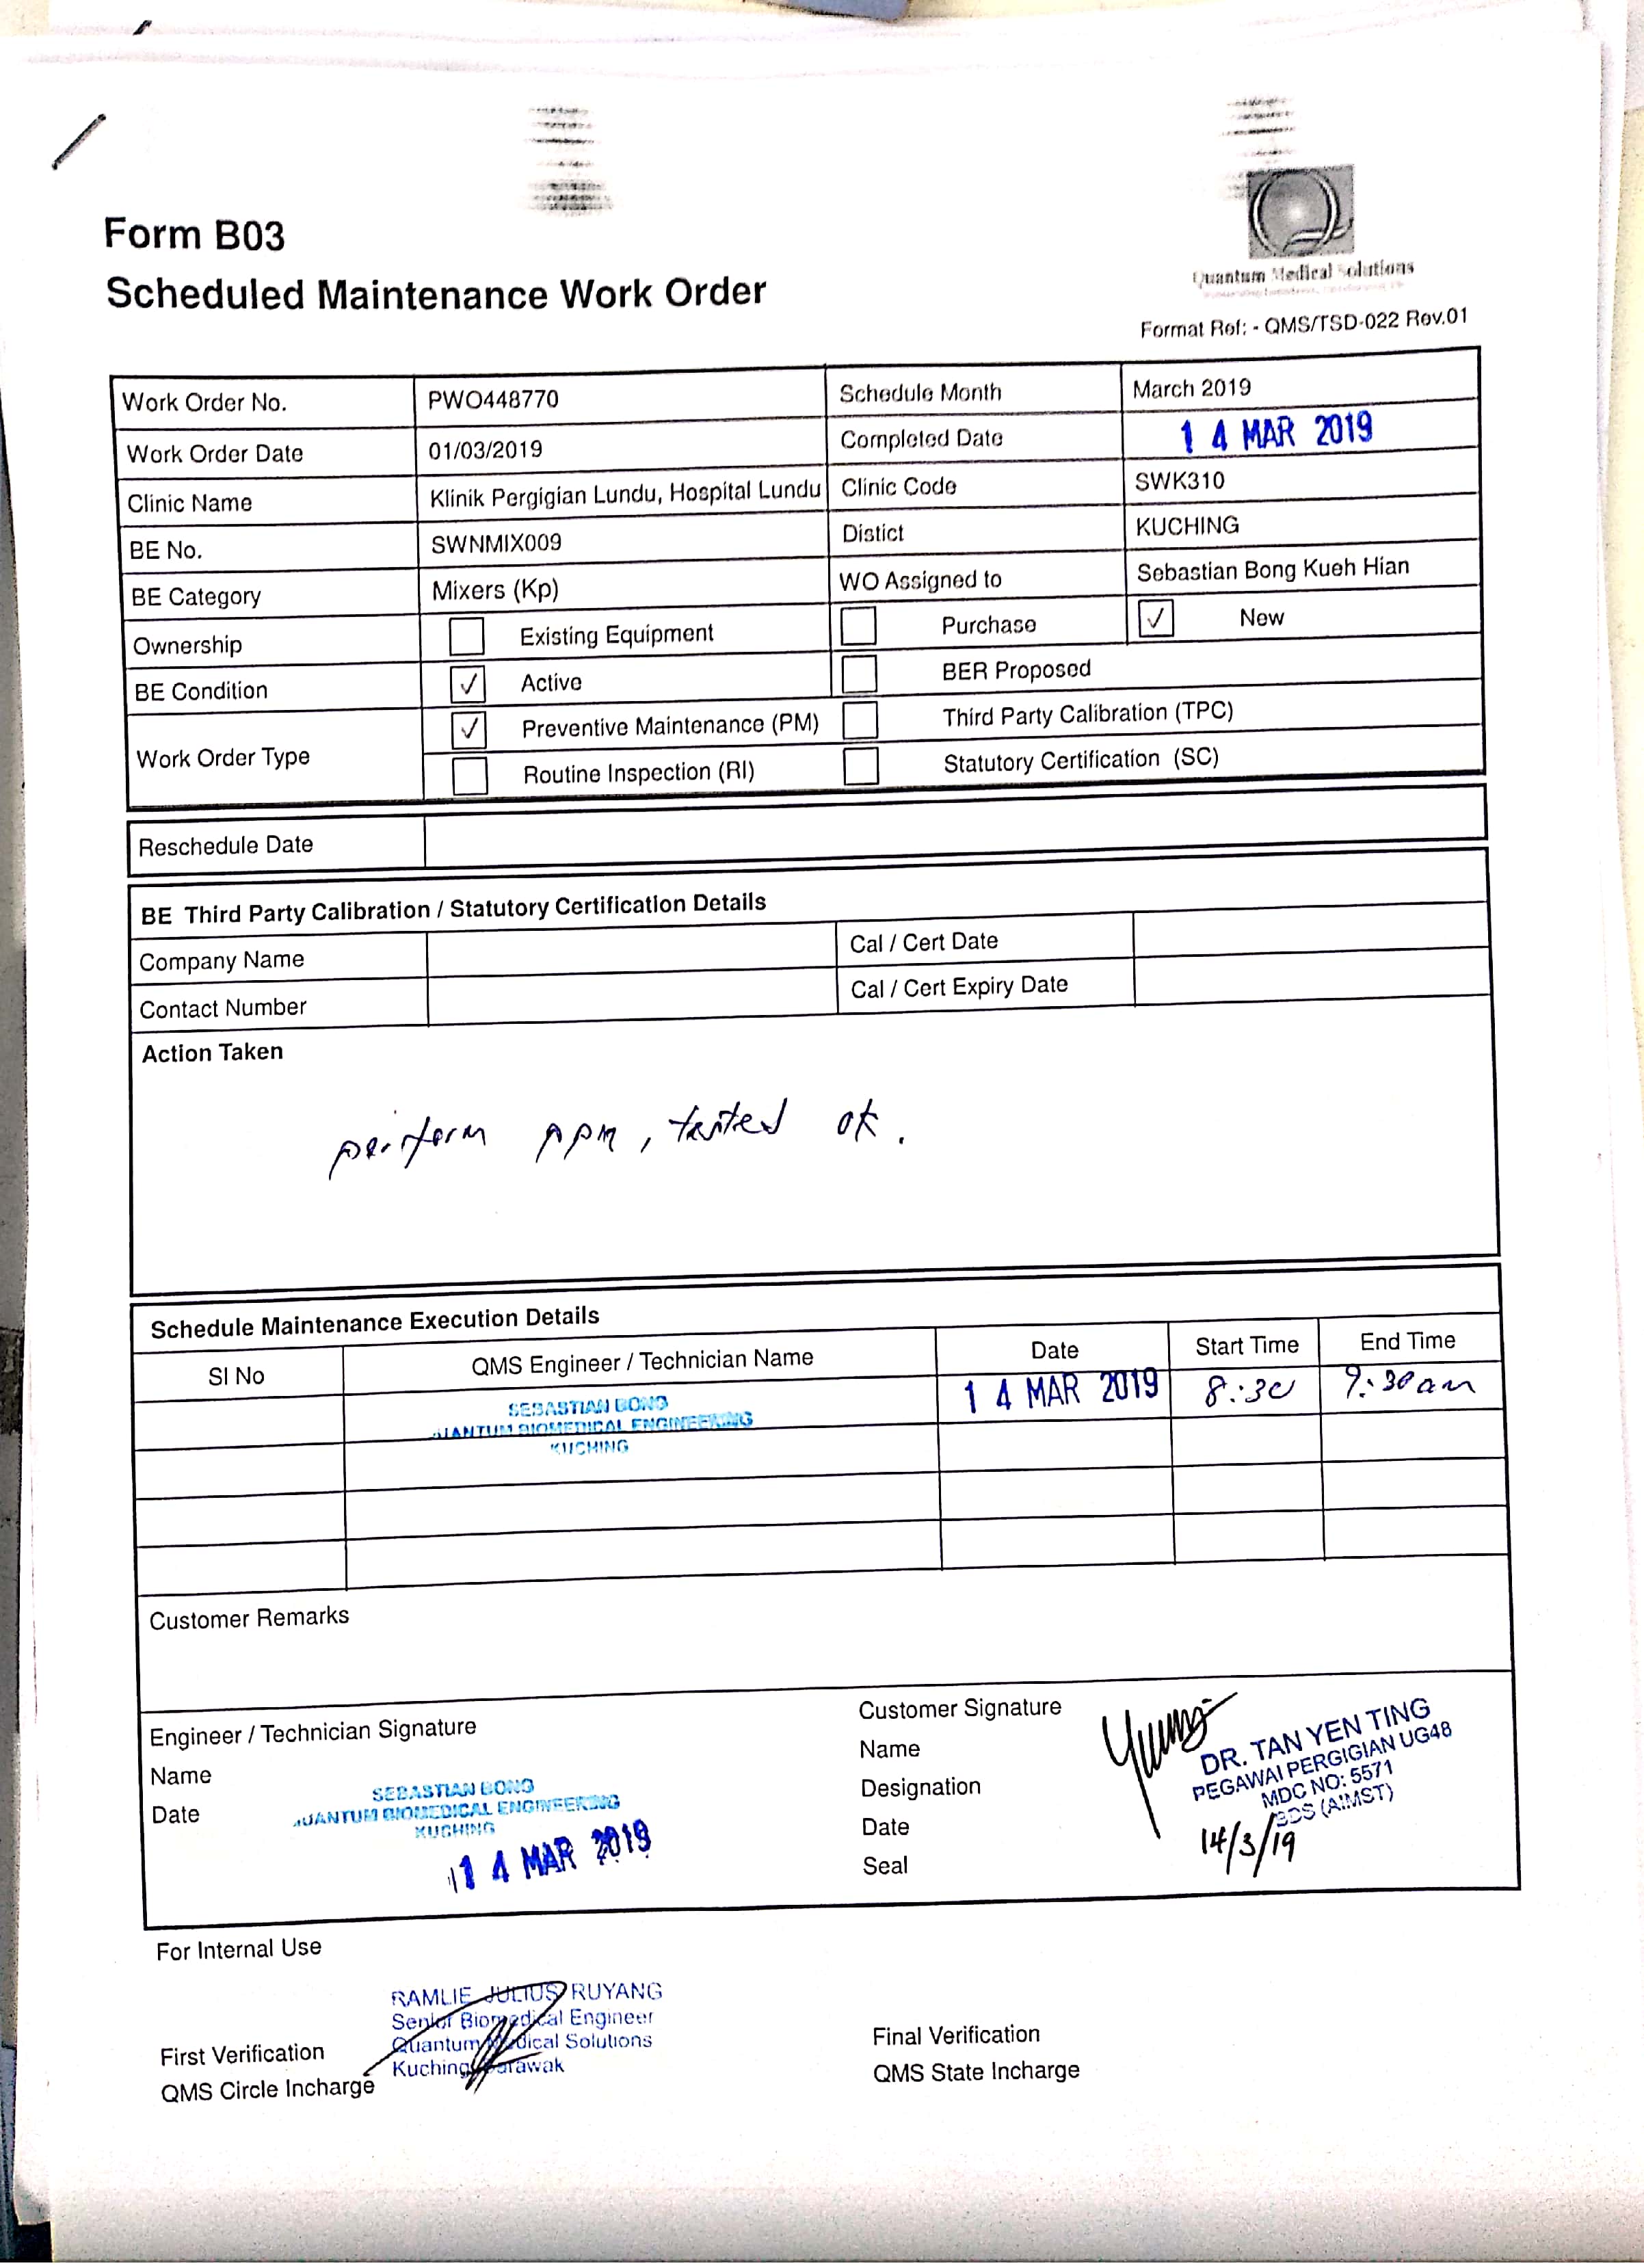 Form B03
Scheduled Maintenance Work Order
Quantum Medical Solutions
Format Ref: - QMS/TSD-022 Rev.01
Work Order No. PWO448770 Schedule Month March 2019
Work Order Date 01/03/2019 Completed Date 14 MAR 2019
Clinic Name Klinik Pergigian Lundu, Hospital Lundu Clinic Code SWK310
BE No. SWNMIX009 Distict KUCHING
BE Category Mixers (Kp) WO Assigned to Sebastian Bong Kueh Hian
Ownership Existing Equipment Purchase ✓ New
BE Condition ✓ Active BER Proposed
Work Order Type ✓ Preventive Maintenance (PM) Third Party Calibration (TPC)
Routine Inspection (RI) Statutory Certification (SC)
Reschedule Date
BE Third Party Calibration / Statutory Certification Details
Company Name Cal / Cert Date
Contact Number Cal / Cert Expiry Date
Action Taken
perform ppm, tested ok.
Schedule Maintenance Execution Details
Sl No QMS Engineer / Technician Name Date Start Time End Time
SEBASTIAN BONG 14 MAR 2019 8:30 9:30am
QUANTUM BIOMEDICAL ENGINEERING
KUCHING
Customer Remarks
Engineer / Technician Signature
Name
Date
SEBASTIAN BONG
QUANTUM BIOMEDICAL ENGINEERING
KUCHING
14 MAR 2019
Customer Signature
Name
Designation
Date
Seal
DR. TAN YEN TING
PEGAWAI PERGIGIAN UG48
MDC NO: 5571
BDS (AIMST)
14/3/19
For Internal Use
RAMLIE JULIUS RUYANG
Senior Biomedical Engineer
Quantum Medical Solutions
Kuching Sarawak
First Verification
QMS Circle Incharge
Final Verification
QMS State Incharge